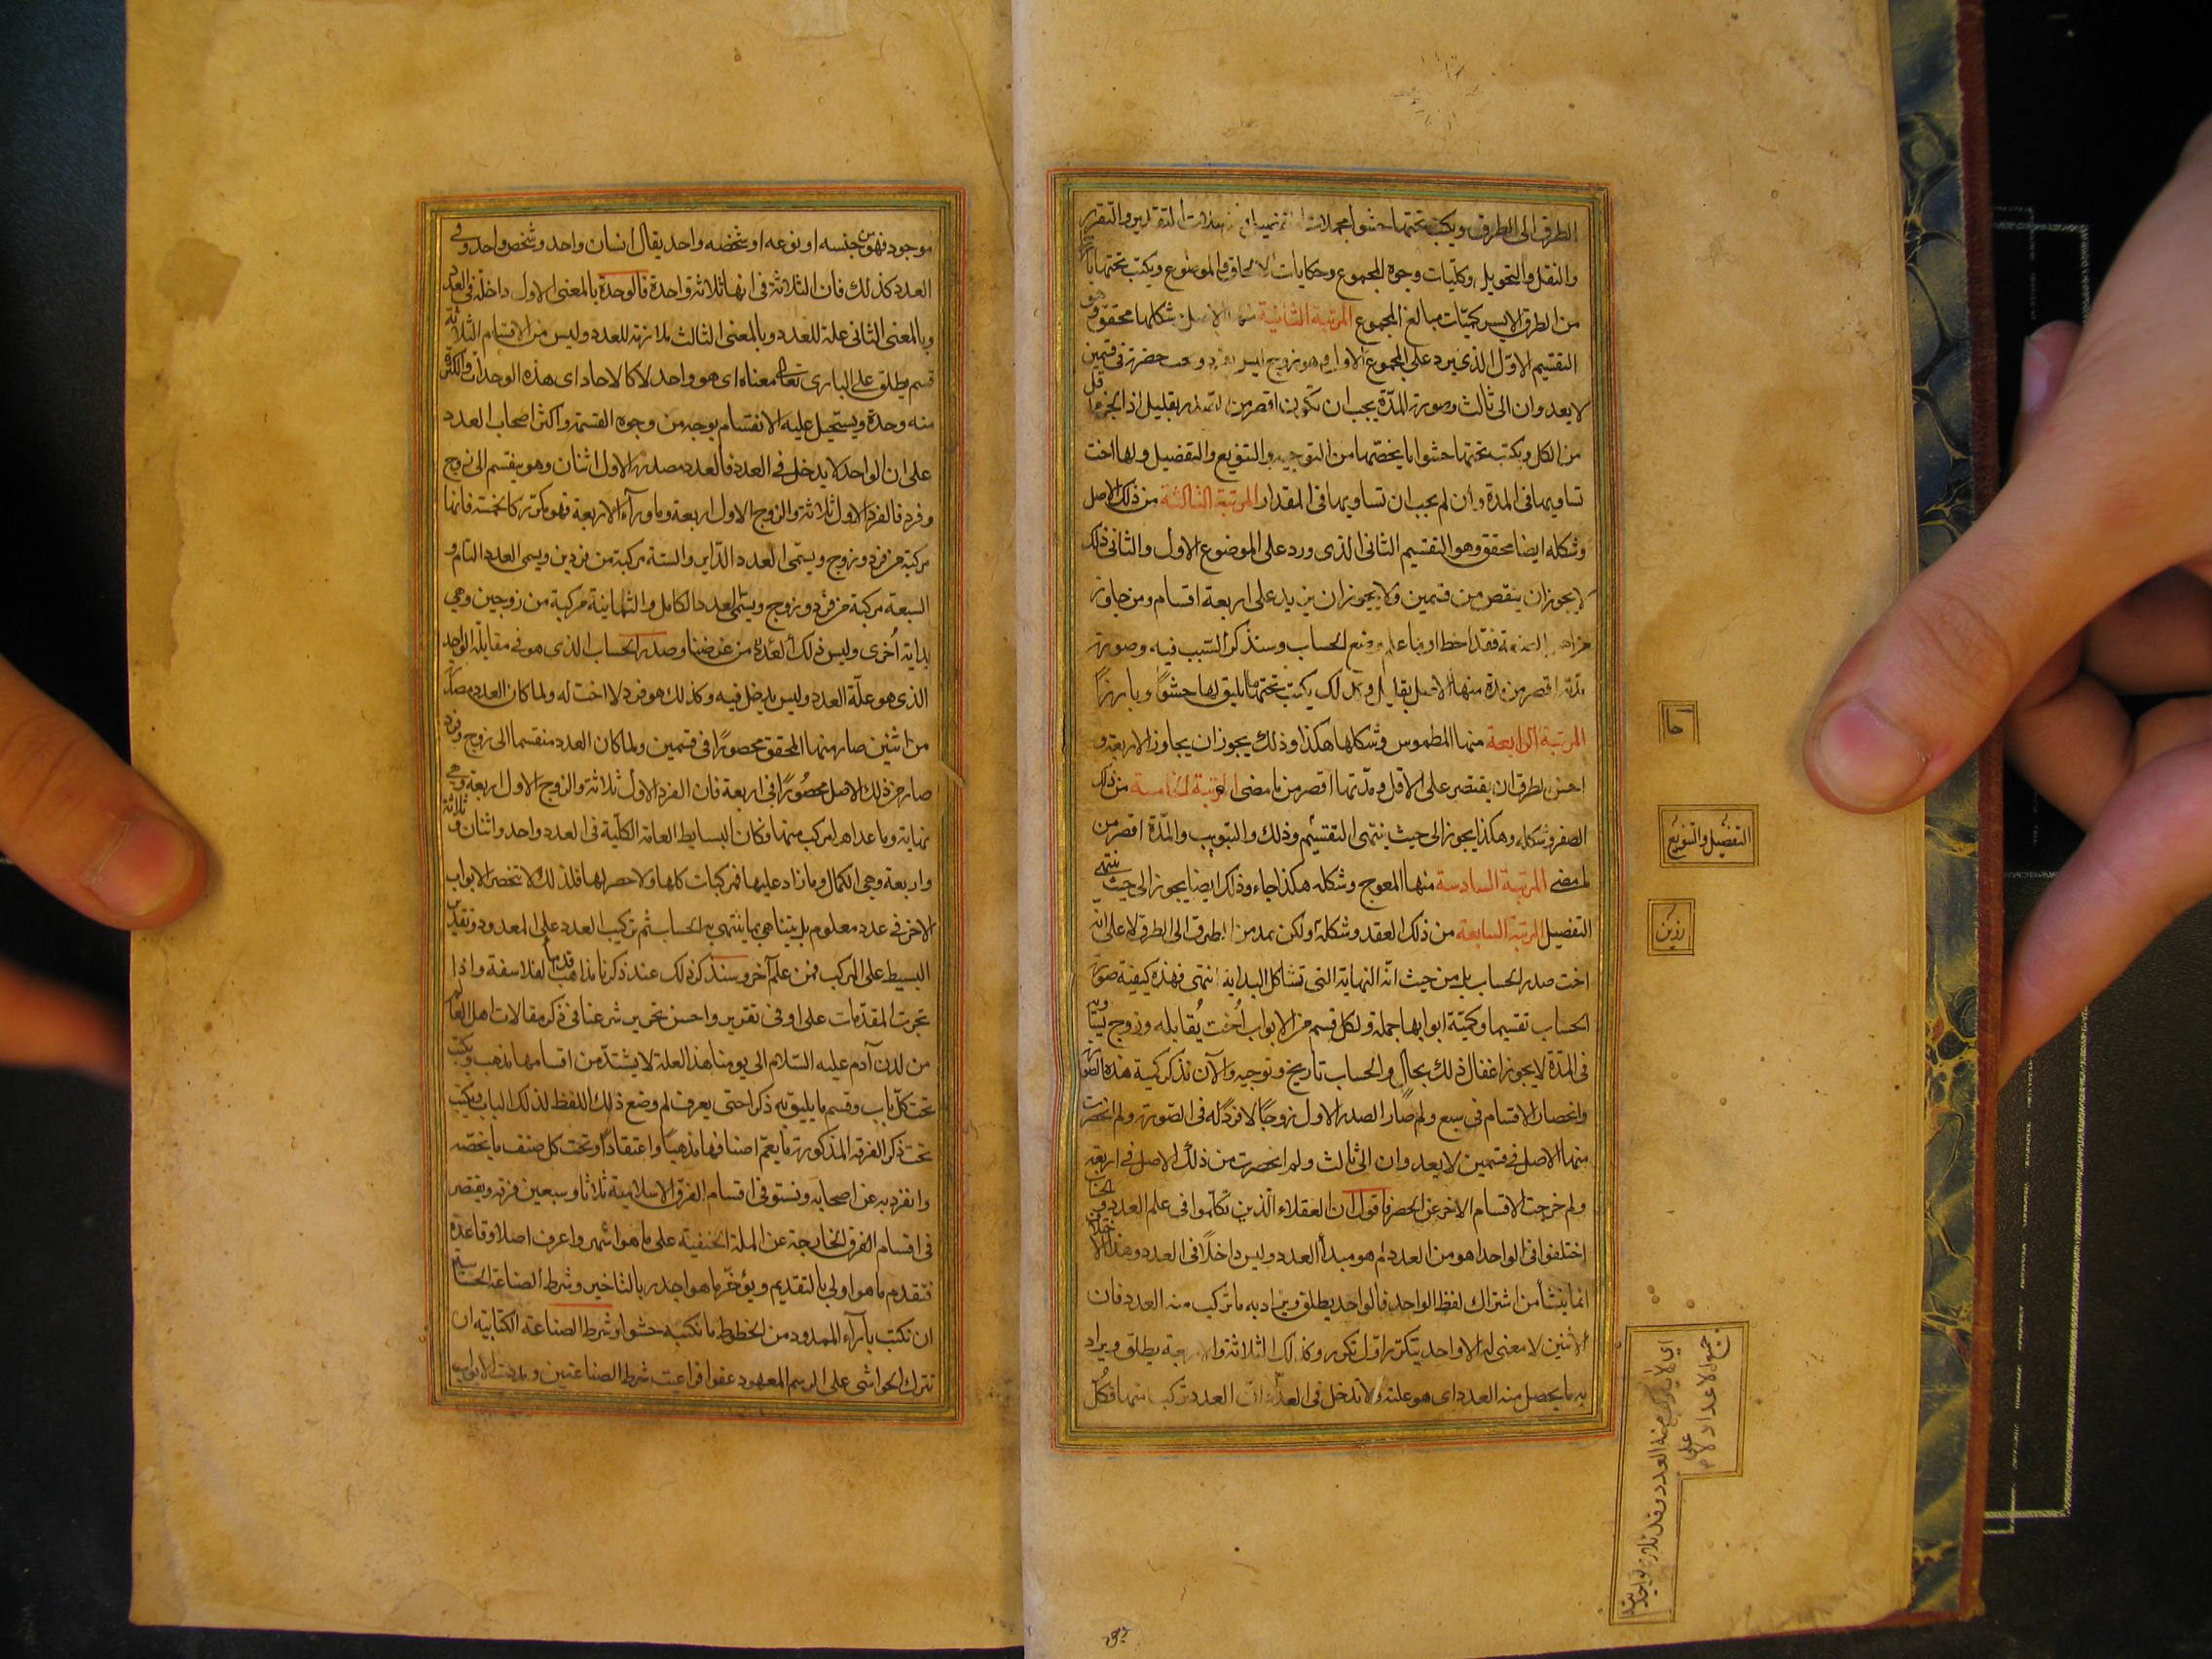 الطرف الى الطرف ويكتب تحتها حشوا مجملات التقدير والتقرير
والنقل والتحويل وكليات وجوه المجموع وحكايات الالحاق والموضوع ويكتب تحتها بارزا
من الطرف الايسر كميات مبالغ المجموع المرتبة الثانية منها الاصل شكلها محقق وهو
التقسيم الاول الذي يرد على المجموع الاول وهو زوج ليس بفرد ويجب حصره في قسمين
لا يعدوان الى ثالث وصورة المدة يجب ان تكون اقصر من الصدر بقليل اذ الجزء اقل
من الكل ويكتب تحتها حشوا ما يخصها من التوجيه والتنويع والتفصيل ولها اخت
تساويها في المدة وان لم يجب ان تساويها في المقدار المرتبة الثالثة من ذلك الاصل
وشكله ايضا محقق وهو التقسيم الثاني الذي ورد على الموضوع الاول والثاني وذلك
لا يجوز ان ينقص من قسمين ولا يجوز ان يزيد على اربعة اقسام ومن جاوز
من اهل الصنعة فقد اخطا وما علم وضع الحساب وسنذكر السبب فيه وصورة
مدته اقصر من مدة منها الاصل بقليل وكذلك يكتب تحتها ما يليق بها حشوا وبارزا
المرتبة الرابعة منها المطموس وشكلها هكذا وذلك يجوز ان يجاوز الاربعة و
احسن الطرق ان يقتصر على الاقل ومدتها اقصر من ما مضى المرتبة الخامسة من ذلك
الصغر وشكله وهكذا يجوز الى حيث ينتهي التقسيم وذلك والتبويب والمدة اقصر من
ما مضى المرتبة السادسة منها المعوج وشكله هكذا جاء وذلك ايضا يجوز الى حيث ينتهي
التفصيل المرتبة السابعة من ذلك العقد وشكله ولكن يمد من الطرف الى الطرف لا على انه
اخت صدر الحساب بل من حيث انه النهاية التي تشاكل البداية انتهى فهذه كيفية صورة
الحساب تقسيما وكمية ابوابها جملة ولكل قسم من الابواب اخت يقابله وزوج يساويه
في المدة لا يجوز اغفال ذلك بحال والحساب تاريخ وتوجيه والآن نذكر كمية هذه الصورة
وانحصار الاقسام في سبع ولم صار الصدر الاول زوجا لا فرد له في الصورة ولم انحصرت
منها الاصل في قسمين لا يعدوان الى ثالث ولم انحصرت من ذلك الاصل في اربعة
ولم خرجت الاقسام الاخر عن الحصر فاقول ان العقلاء الذين تكلموا في علم العدد والحساب
اختلفوا في الواحد اهو من العدد ام هو مبدأ العدد وليس داخلا في العدد وهذا الاختلاف
انما ينشأ من اشتراك لفظ الواحد فالواحد يطلق ويراد به ما تركب منه العدد فان
الاثنين لا معنى له الا واحد يتكرر اول تكرر وكذلك الثلاثة والاربعة يطلق ويراد
به ما يحصل منه العدد اى هو علته ولا تدخل في العدد اى لا تركب منها فكل
حا
التفصيل والتنويع
رزين
موجود فهو من جنسه او نوعه او شخصه واحد يقال انسان واحد وشخص واحد وفي
العدد كذلك فان الثلاثة في انها ثلاثة واحدة فالوحدة بالمعنى الاول داخلة في العدد
وبالمعنى الثاني علة للعدد وبالمعنى الثالث ملازمة للعدد وليس من الاقسام الثلاثة
قسم يطلق على الباري تعالى معناه اى هو واحد لا كالاحاد اى هذه الوحدات والكثرة
منه وحدة ويستحيل عليه الانقسام بوجه من وجوه القسمة واكثر اصحاب العدد
على ان الواحد لا يدخل في العدد فالعدد مصدره الاول اثنان وهو ينقسم الى زوج
وفرد فالفرد الاول ثلاثة والزوج الاول اربعة وما وراء الاربعة فهو مكرر كالخمسة فانها
مركبة من فرد وزوج ويسمى العدد الداير والستة مركبة من فردين ويسمى العدد التام و
السبعة مركبة من فرد وزوج ويسمى العدد الكامل والثمانية مركبة من زوجين وهي
بداية اخرى وليس ذلك من غرضنا وصدر الحساب الذي هو في مقابلة الواحد
الذي هو علة العدد وليس يدخل فيه وكذلك هو فرد لا اخت له ولما كان العدد مصدره
من اثنين صار منها المحقق محصورا في قسمين ولما كان العدد منقسما الى زوج وفرد
صار من ذلك الاصل محصورا في اربعة فان الفرد الاول ثلاثة والزوج الاول اربعة وهي
نهاية وما عداها مركب منها فكان البسايط العامة الكلية في العدد واحد واثنان وثلاثة
واربعة وهي الكمال وما زاد عليها فمركبات كلها ولا حصر لها فلذلك لا تنحصر الابواب
الاخر في عدد معلوم بل يتناهى بما ينتهي به الحساب ثم تركيب العدد على المعدود وتقدير
البسيط على المركب فمن علم آخر وسنذكر ذلك عند ذكرنا مذاهب قدما الفلاسفة واذا
نجزت المقدمات على اوفى تقرير واحسن تحرير شرعنا في ذكر مقالات اهل العالم
من لدن آدم عليه السلام الى يومنا هذا لعله لا يشذ من اقسامها مذهب ونكتب
تحت كل باب وقسم ما يليق به ذكرا حتى يعرف لم وضع ذلك اللفظ لذلك الباب ونكتب
تحت ذكر الفرقة المذكورة ما يعم اصنافها مذهبا واعتقادا وتحت كل صنف ما يخصه
وانفرد به عن اصحابه ونستوفي اقسام الفرق الاسلامية ثلاثا وسبعين فرقة ويقتصر
في اقسام الفرق الخارجة عن الملة الحنيفية على ما هو اشهر واعرف اصلا وقاعدة
فنقدم ما هو اولى بالتقديم ويؤخر ما هو اجدر بالتاخير وشرط الصناعة الحسابية
ان نكتب بازاء الممدود من الخطوط ما نكتبه حشوا وشرط الصناعة الكتابية ان
نترك الحواشي على الرسم المعهود عفوا فراعيت شرط الصناعتين ومددت الابواب